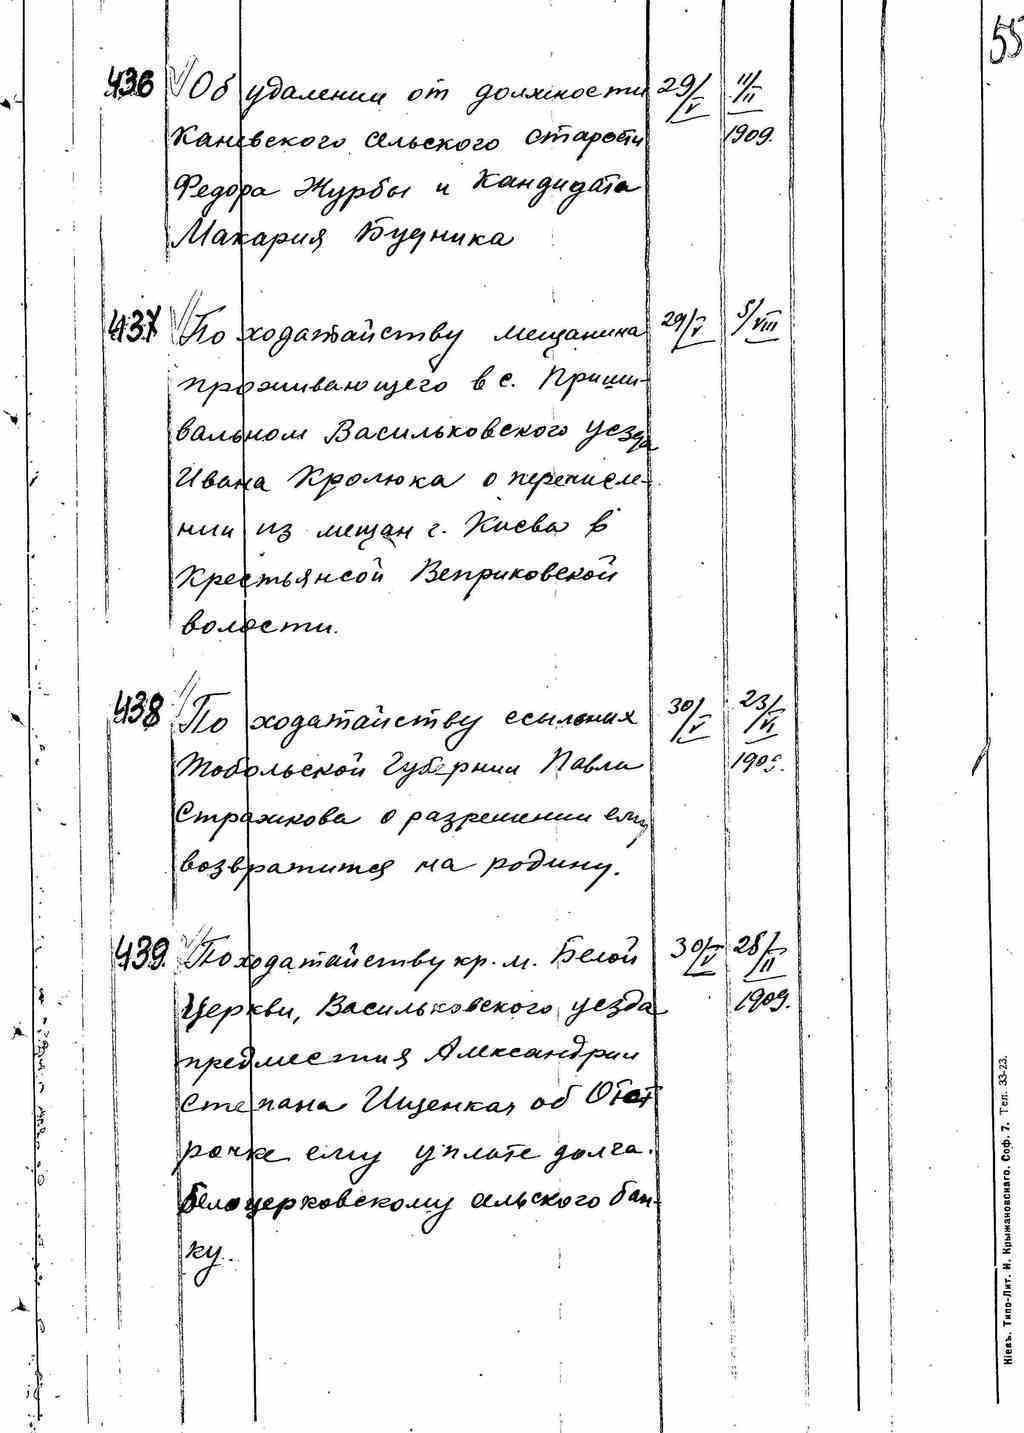 55
436 Об удалении от должности 29/V 11/II
Каневского сельского старосты 1909.
Федора Журбы и кандидата
Макария Будника
437 По ходатайству мещанина 29/V 5/VIII
проживающего в с. Приши-
вальном Васильковского уезда
Ивана Кролюка о перечисле-
нии из мещан г. Киева в
крестьянсой Веприковской
волости.
438 По ходатайству ссыльних 30/V 23/VI
Тобольской Губернии Павла
Стражкова о разрешении ему
возвратится на родину.
439. По ходатайству кр. м. Белой 30/V 28/II
Церкви, Васильковского уезда 1909.
предместия Александрии
Степана Ищенка, об Отст
рочке ему уплате долга.
белоцерковскому сельского бан-
ку.
Кіевъ. Типо-Лит. И. Крыжановскаго. Соф. 7. Тел. 33-23.